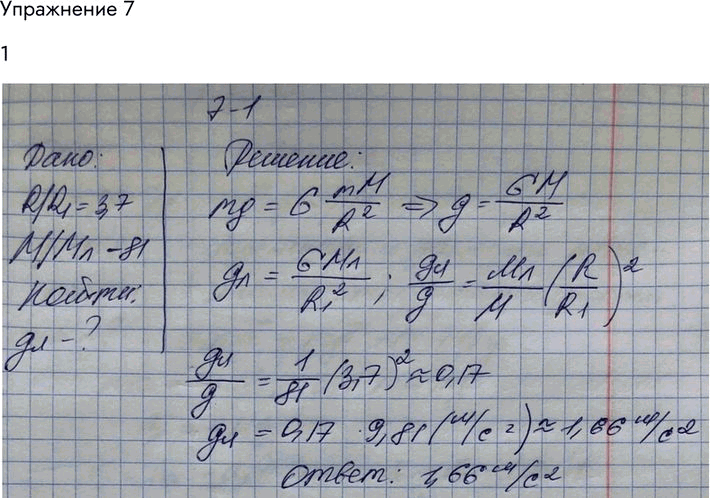 Упражнение 7
1
7-1
Дано:
R/R₁ = 3,7
M/Mл = 81
Найти:
gл - ?
Решение:
mg = G mM/R² ⇒ g = GM/R²
gл = GMл/R₁² ; gл/g = Mл/M (R/R₁)²
gл/g = 1/81 (3,7)² ≈ 0,17
gл = 0,17 · 9,81 (м/с²) ≈ 1,66 м/с²
Ответ: 1,66 м/с²